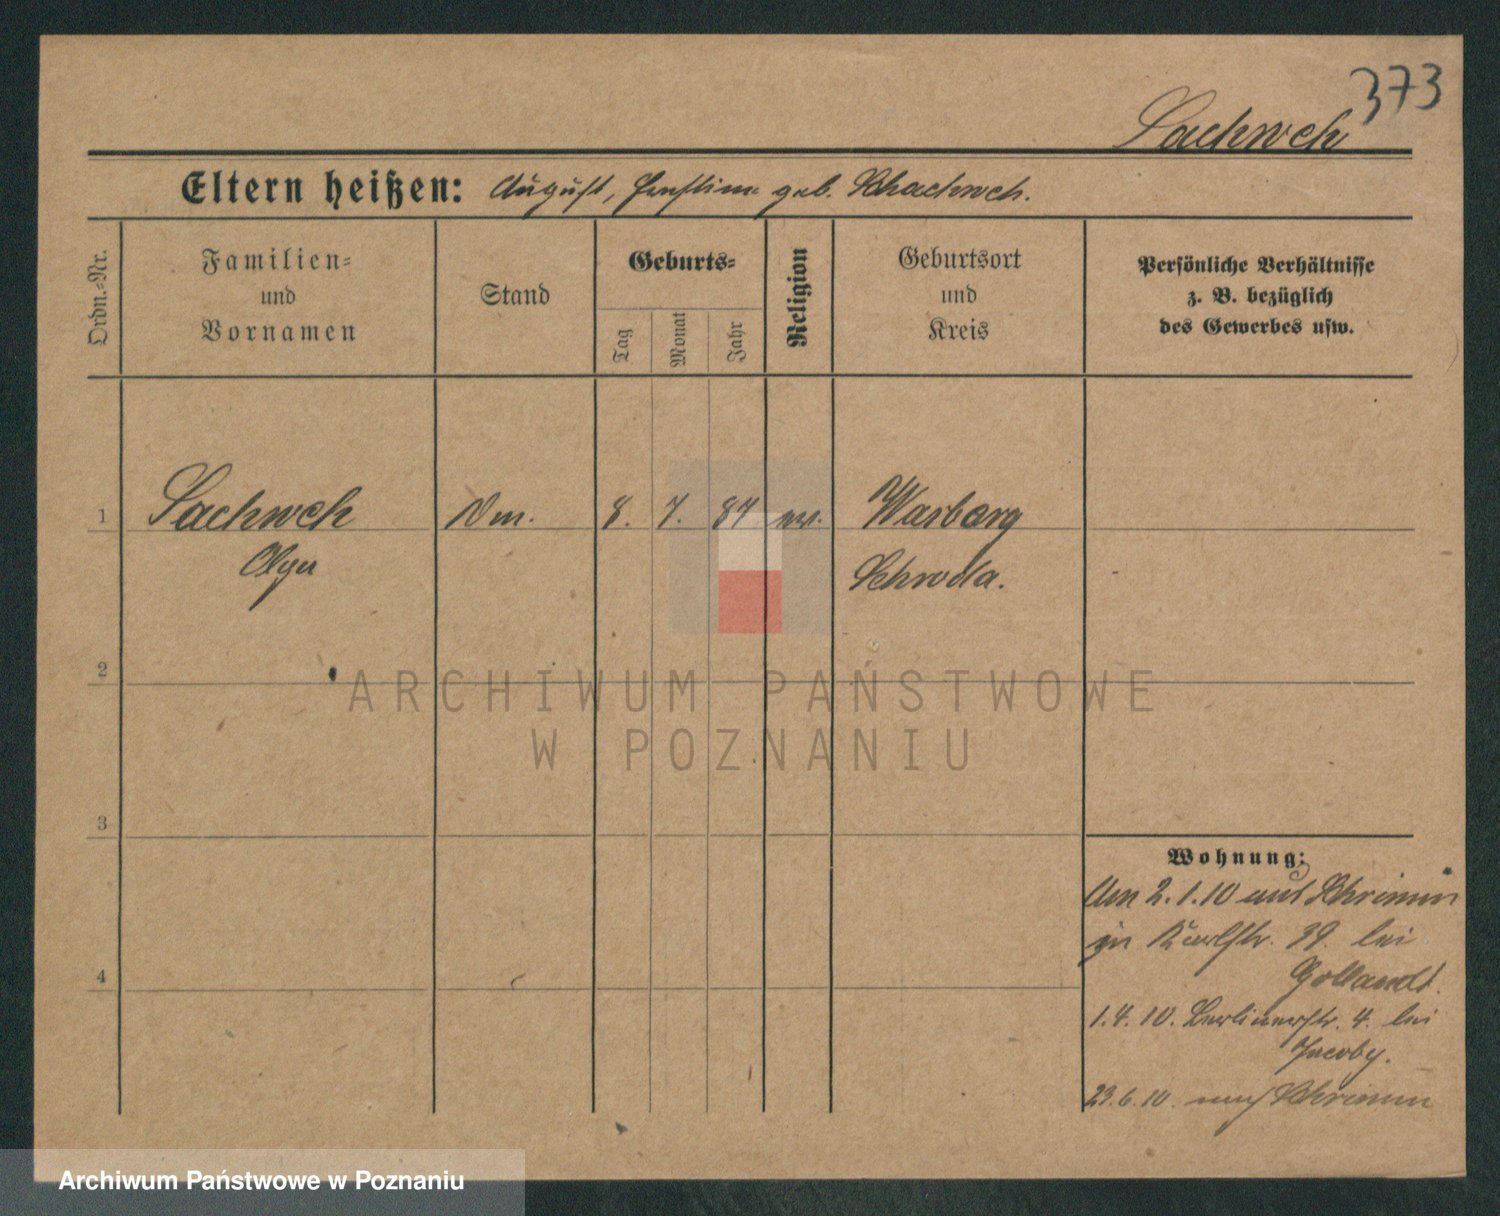 373
Sachweh
Eltern heißen: August, Ernstine geb. Schachweh.
Ordn.-Nr.
Familien-
und
Vornamen
Stand
Geburts-
Tag
Monat
Jahr
Religion
Geburtsort
und
Kreis
Persönliche Verhältnisse
z. B. bezüglich
des Gewerbes usw.
1
Sachweh
Olga
8. 7. 87
Warberg
Schroda.
2
3
4
Wohnung:
Am 2.1.10 aus Schrimm
in Karlstr. 39. bei
Gollandt.
1.4.10. Berlinerstr. 4. bei
Jacoby.
23.6.10. nach Schrimm
ARCHIWUM PAŃSTWOWE
W POZNANIU
Archiwum Państwowe w Poznaniu